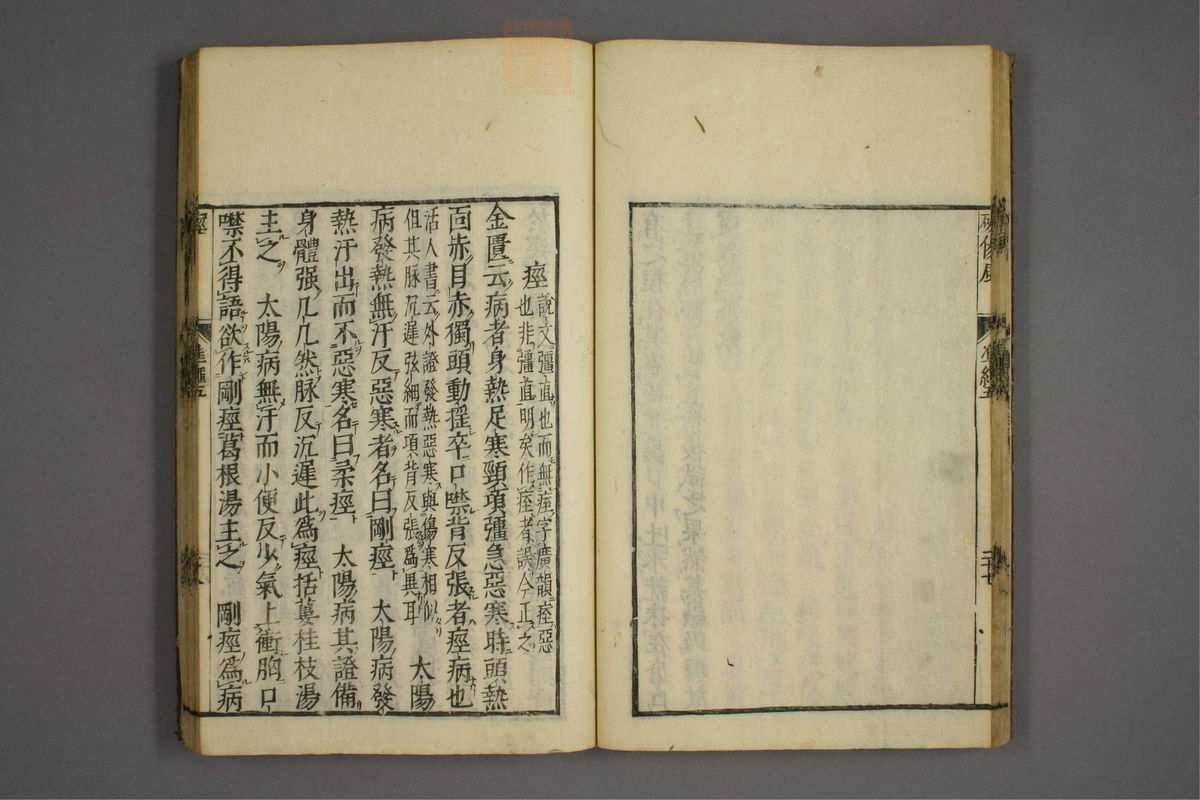 破傷風
準繩五
痙 說文彊直也而無痓字廣韻痓惡
也非彊直明矣作痓者誤今正之
金匱云病者身熱足寒頸項彊急惡寒時頭熱
面赤目赤獨頭動搖卒口噤背反張者痙病也
活人書云外證發熱惡寒與傷寒相似
但其脉沉遲弦細而項背反張爲異耳 太陽
病發熱無汗反惡寒者名曰剛痙 太陽病發
熱汗出而不惡寒名曰柔痙 太陽病其證備
身體强几几然脉反沉遲此爲痙括蔞桂枝湯
主之 太陽病無汗而小便反少氣上衝胸口
噤不得語欲作剛痙葛根湯主之 剛痙爲病
痙
準繩五